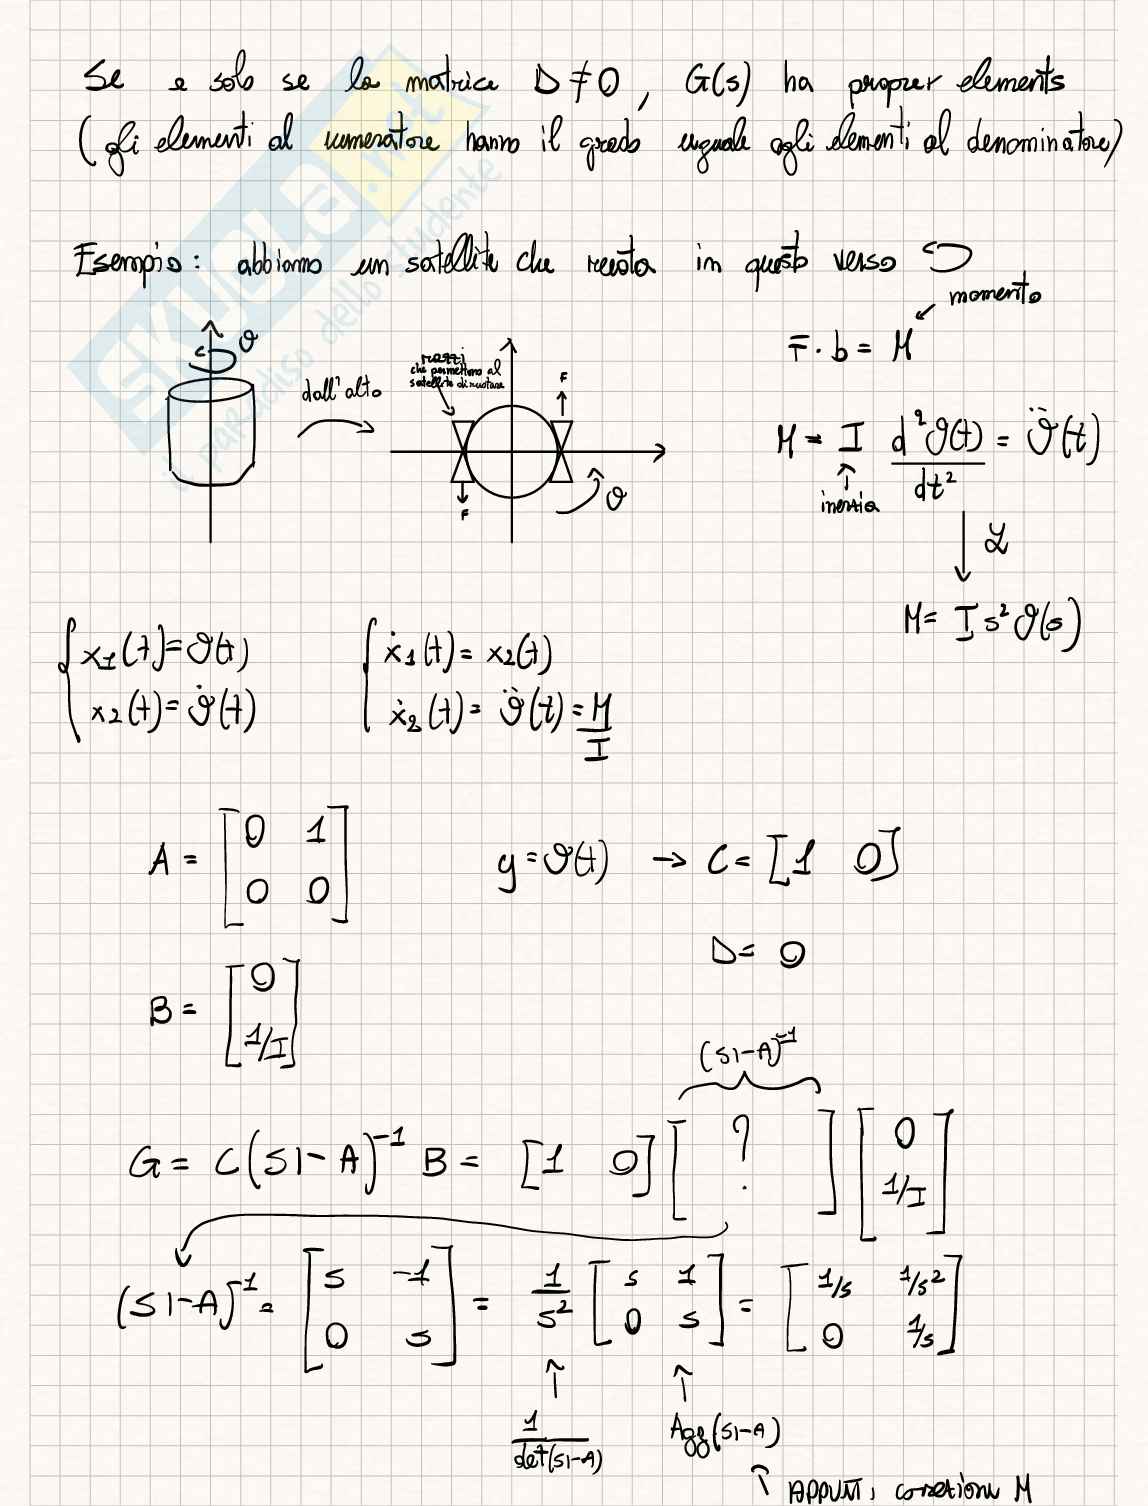 Se e solo se la matrice D ≠ 0, G(s) ha proper elements
(gli elementi al numeratore hanno il grado uguale agli elementi al denominatore)
SKUOLA.net
il paradiso dello studente
Esempio: abbiamo un satellite che ruota in questo verso
momento
F · b = M
θ
dall'alto
razzi
che permettono al
satellite di ruotare
F
F
θ
M = I d²θ(t)/dt² = θ̈(t)
inerzia
ℒ
M = I s² θ(s)
{ x1(t) = θ(t)
x2(t) = θ̇(t)
{ ẋ1(t) = x2(t)
ẋ2(t) = θ̈(t) = M/I
A = [0 1
0 0]
y = θ(t) → C = [1 0]
D = 0
B = [0
1/I]
(sI-A)⁻¹
G = C(sI-A)⁻¹ B = [1 0] [ ? ] [0
1/I]
(sI-A)⁻¹ = [s -1
0 s] = 1/s² [s 1
0 s] = [1/s 1/s²
0 1/s]
1/det(sI-A)
Agg(sI-A)
APPUNTI